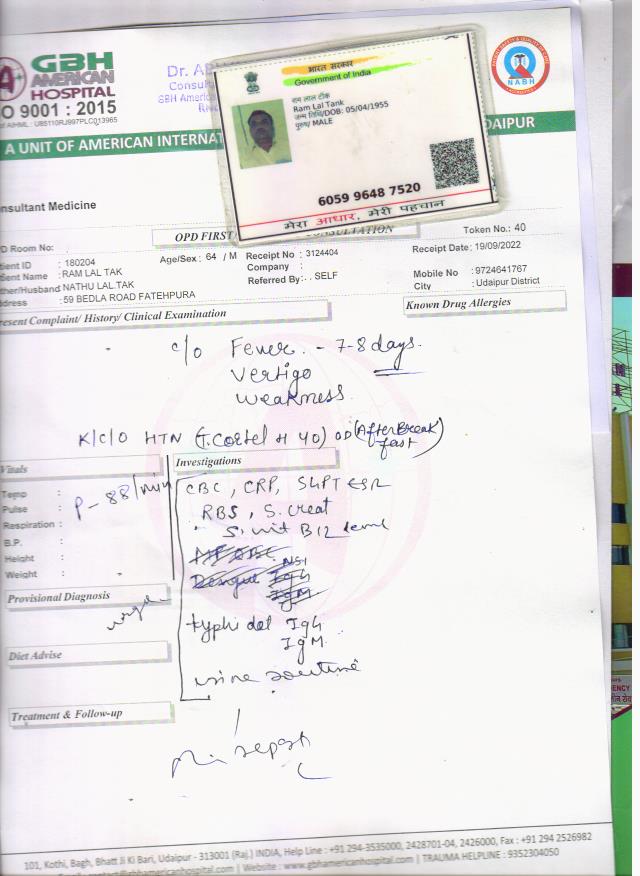 GBH
AMERICAN
HOSPITAL
O 9001 : 2015
of AIHML : U85110RJ997PLC013965
Dr. A
Consul
GBH Americ
A UNIT OF AMERICAN INTERNAT
DAIPUR
NABH
भारत सरकार
Government of India
राम लाल टांक
Ram Lal Tank
जन्म तिथि/DOB: 05/04/1955
पुरुष/ MALE
6059 9648 7520
मेरा आधार, मेरी पहचान
nsultant Medicine
OPD FIRST
CONSULTATION
Token No.: 40
D Room No:
tient ID : 180204
Age/Sex : 64 / M
Receipt No : 3124404
Receipt Date: 19/09/2022
tient Name : RAM LAL TAK
Company :
ther/Husband NATHU LAL TAK
Referred By: . . SELF
Mobile No : 9724641767
ddress : 59 BEDLA ROAD FATEHPURA
City : Udaipur District
resent Complaint/ History/ Clinical Examination
Known Drug Allergies
c/o Fever - 7-8 days.
Vertigo
Weakness
K/C/O HTN (T. Cortel H 40) OD (After Break
fast)
Vitals
Investigations
Temp :
Pulse :
P- 88/min
Respiration :
B.P. :
Height :
Weight :
CBC, CRP, SGPT ESR
RBS, S. creat
S. vit B12 level
Dengue NS1
IgG
IgM
typhi dot IgG
IgM
urine routine
Provisional Diagnosis
Diet Advise
Treatment & Follow-up
101, Kothi, Bagh, Bhatt Ji Ki Bari, Udaipur - 313001 (Raj.) INDIA, Help Line : +91 294-3535000, 2428701-04, 2426000, Fax : +91 294 2526982
hamericanhospital.com | Website : www.gbhamericanhospital.com | TRAUMA HELPLINE : 9352304050